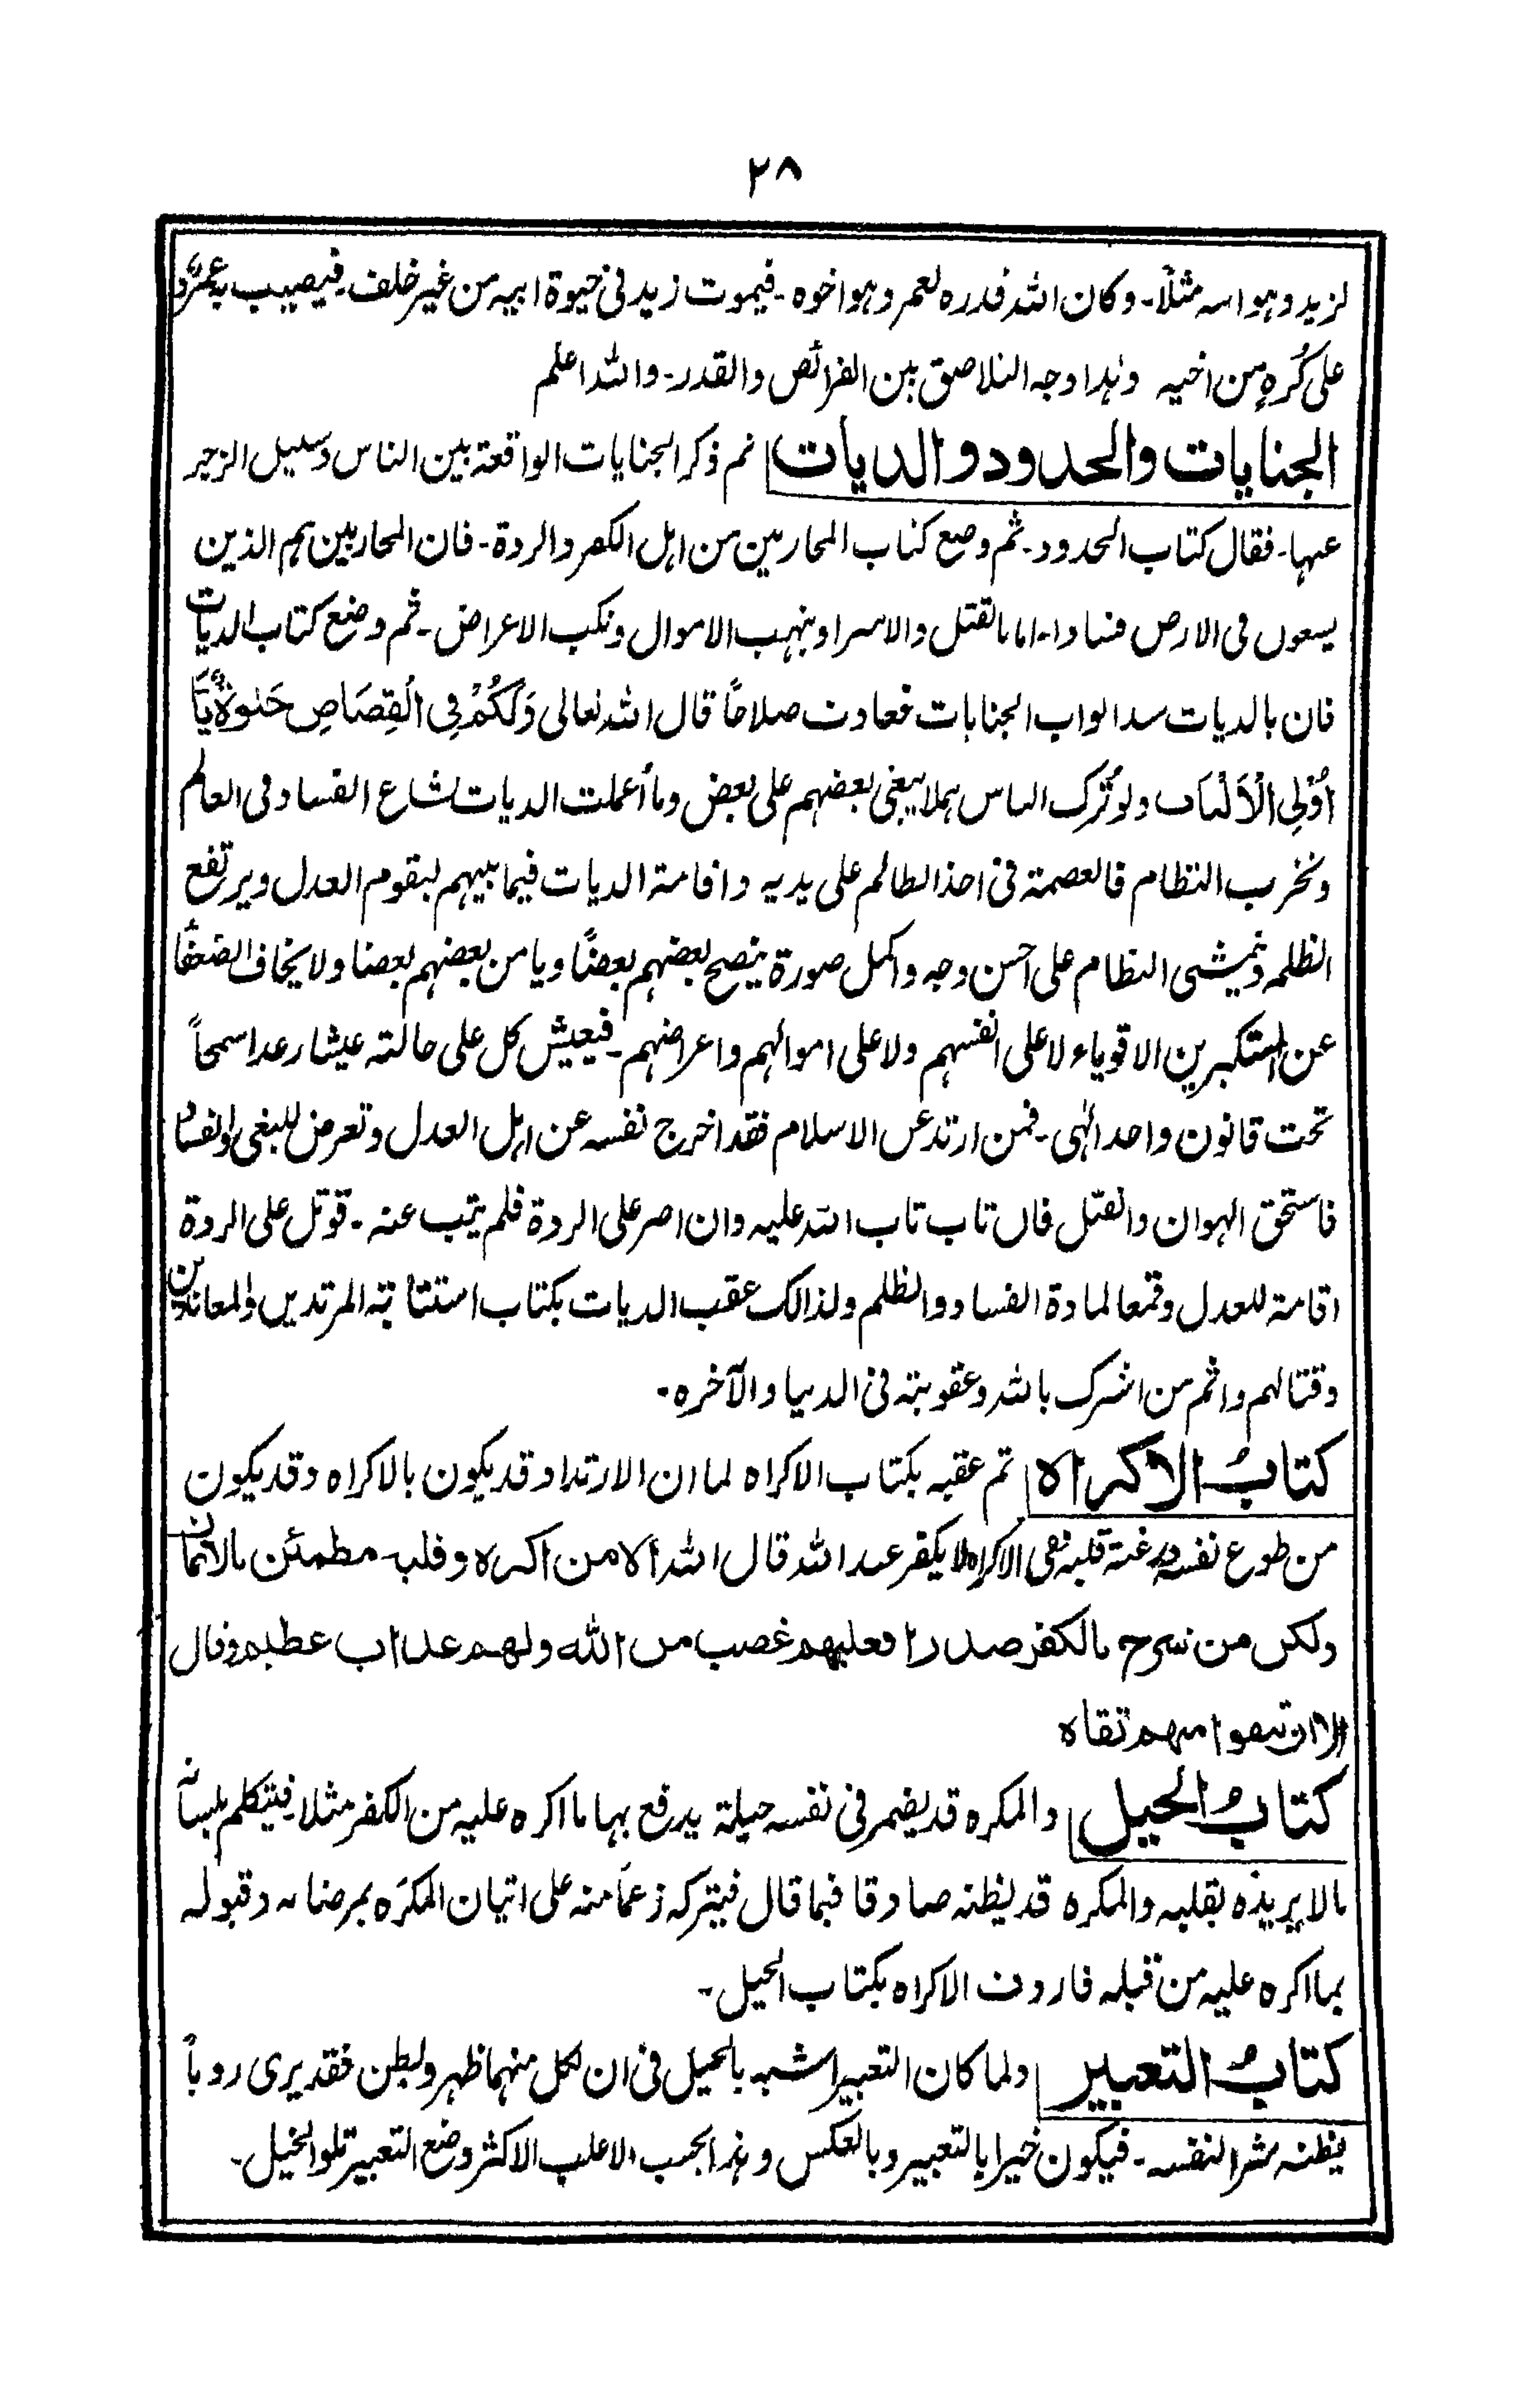 ٢٨
لزيد وهو اسه مثلاً۔ وكان الله قدره لعمرو وهو اخوه۔ فيموت زيد فى حيوة ابيه من غير خلف۔ فيصيب به عمرو
على كُرهٍ من اخيه وهذا وجه التلاصق بين الفرائض والقدر۔ والله اعلم
الجنايات والحدود والديات ثم ذكر الجنايات الواقعة بين الناس وسبيل الزجر
عنها۔ فقال كتاب الحدود۔ ثم وضع كتاب المحاربين من اهل الكفر والردة۔ فان المحاربين هم الذين
يسعون فى الارض فسادا۔ اما بالقتل والاسر او بنهب الاموال ونكب الاعراض۔ ثم وضع كتاب الديات
فان بالديات سد ابواب الجنايات فعادت صلاحًا قال الله تعالى وَلَكُمْ فِى الْقِصَاصِ حَيٰوةٌ يَّا
اُولِى الْاَلْبَاب ولو تُرك الناس هملا يبغى بعضهم على بعض وما أعملت الديات لشاع الفساد فى العالم
وتخرب النظام فالعصمة فى اخذ الظالم على يديه واقامة الديات فيما بينهم ليقوم العدل ويرتفع
الظلم وتمشى النظام على احسن وجه واكمل صورة ينصح بعضهم بعضًا ويامن بعضهم بعضا ولا يخاف الضعفا
عن المستكبرين الاقوياء لا على انفسهم ولا على اموالهم واعراضهم۔ فيعيش كل على حالته عيشا رغدا سمحاً
تحت قانون واحد الٰهى۔ فمن ارتد عن الاسلام فقد اخرج نفسه عن اهل العدل وتعرض للبغى والفساد
فاستحق الهوان والقتل فان تاب تاب الله عليه وان اصر على الردة فلم يتب عنه۔ قوتل على الردة
اقامة للعدل وقمعا لمادة الفساد والظلم ولذالك عقب الديات بكتاب استتابة المرتدين والمعاندين
وقتالهم واثم من اشرك بالله وعقوبته فى الدنيا والآخره۔
كتابُ الاكراه ثم عقبه بكتاب الاكراه لما ان الارتداد قد يكون بالاكراه وقد يكون
من طوع نفسه ورغبة قلبه ففى الاكراه لا يكفر عند الله قال الله الا من اكره وقلبه مطمئن بالايمان
ولكن من شرح بالكفر صدرا فعليهم غضب من الله ولهم عذاب عظيم وقال
الا ان تتقوا منهم تقاه
كتابُ الحيل والمكره قد يضمر فى نفسه حيلة يدفع بها ما اكره عليه من الكفر مثلا۔ فيتكلم بلسانه
مالا يريده بقلبه والمكره قد يظنه صادقا فيما قال فيتركه زعمًا منه على اتيان المكرَه بمرضاته وقبوله
بما اكره عليه من قبله فاردف الاكراه بكتاب الحيل۔
كتابُ التعبير ولما كان التعبير اشبه بالحيل فى ان لكل منهما ظهر وبطن فقد يرى رويأً
يظنه شرا لنفسه۔ فيكون خيرا بالتعبير وبالعكس وهذا بحسب الاغلب الاكثر وضع التعبير تلو الحيل۔